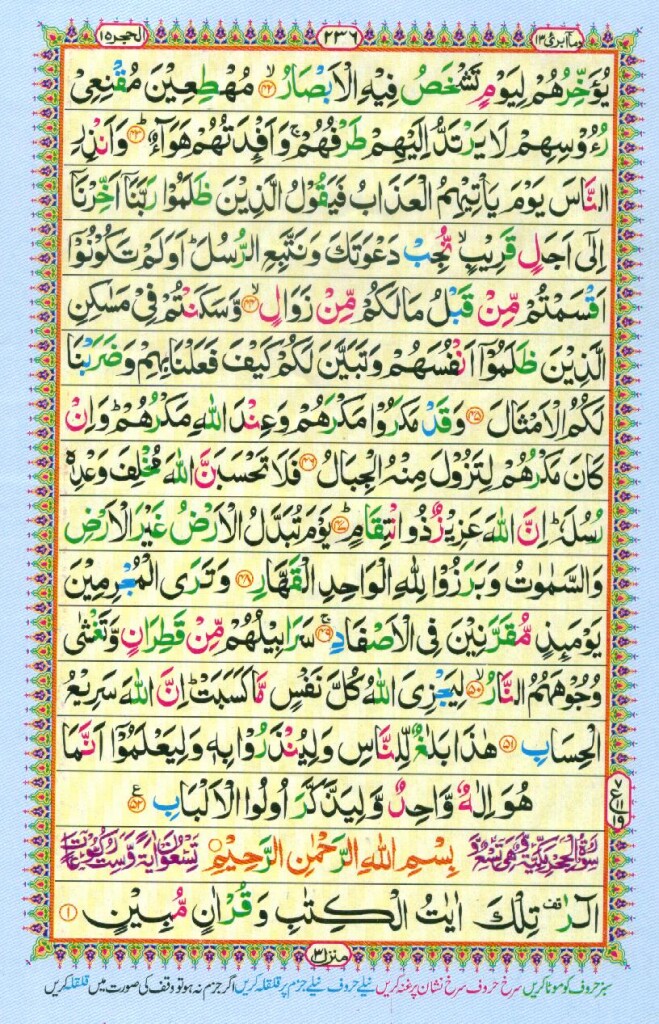 وما ابرئ ۱۳ ۲۳۶ الحجر ۱۵
يُؤَخِّرُهُمْ لِيَوْمٍ تَشْخَصُ فِيْهِ الْاَبْصَارُ ۙ‏﴿۴۲﴾ مُهْطِعِيْنَ مُقْنِعِىْ
رُءُوْسِهِمْ لَا يَرْتَدُّ اِلَيْهِمْ طَرْفُهُمْ ۚ وَاَفْـِٕدَتُهُمْ هَوَآءٌ ؕ‏﴿۴۳﴾ وَاَنْذِرِ
النَّاسَ يَوْمَ يَاْتِيْهِمُ الْعَذَابُ فَيَقُوْلُ الَّذِيْنَ ظَلَمُوْا رَبَّنَاۤ اَخِّرْنَاۤ
اِلٰٓى اَجَلٍ قَرِيْبٍ ۙ نُّجِبْ دَعْوَتَكَ وَنَتَّبِعِ الرُّسُلَ ؕ اَوَلَمْ تَكُوْنُوْۤا
اَقْسَمْتُمْ مِّنْ قَبْلُ مَا لَكُمْ مِّنْ زَوَالٍ ۙ‏﴿۴۴﴾ وَّسَكَنْتُمْ فِىْ مَسٰكِنِ
الَّذِيْنَ ظَلَمُوْۤا اَنْفُسَهُمْ وَتَبَيَّنَ لَكُمْ كَيْفَ فَعَلْنَا بِهِمْ وَضَرَبْنَا
لَكُمُ الْاَمْثَالَ ‏﴿۴۵﴾ وَقَدْ مَكَرُوْا مَكْرَهُمْ وَعِنْدَ اللّٰهِ مَكْرُهُمْ ؕ وَاِنْ
كَانَ مَكْرُهُمْ لِتَزُوْلَ مِنْهُ الْجِبَالُ ‏﴿۴۶﴾ فَلَا تَحْسَبَنَّ اللّٰهَ مُخْلِفَ وَعْدِهٖ
رُسُلَهٗ ؕ اِنَّ اللّٰهَ عَزِيْزٌ ذُوانْتِقَامٍ ؕ‏﴿۴۷﴾ يَوْمَ تُبَدَّلُ الْاَرْضُ غَيْرَ الْاَرْضِ
وَالسَّمٰوٰتُ وَبَرَزُوْا لِلّٰهِ الْوَاحِدِ الْقَهَّارِ ‏﴿۴۸﴾ وَتَرَى الْمُجْرِمِيْنَ
يَوْمَىِٕذٍ مُّقَرَّنِيْنَ فِى الْاَصْفَادِ ۚ‏﴿۴۹﴾ سَرَابِيْلُهُمْ مِّنْ قَطِرَانٍ وَّتَغْشٰى
وُجُوْهَهُمُ النَّارُ ۙ‏﴿۵۰﴾ لِيَجْزِىَ اللّٰهُ كُلَّ نَفْسٍ مَّا كَسَبَتْ ؕ اِنَّ اللّٰهَ سَرِيْعُ
الْحِسَابِ ‏﴿۵۱﴾ هٰذَا بَلٰغٌ لِّلنَّاسِ وَلِيُنْذَرُوْا بِهٖ وَلِيَعْلَمُوْۤا اَنَّمَا
هُوَ اِلٰهٌ وَّاحِدٌ وَّلِيَذَّكَّرَ اُولُوا الْاَلْبَابِ ‏﴿۵۲﴾ ع
۷ ع ۱۹
سُوْرَةُ الْحِجْرِ مَكِّيَّةٌ وَّهِىَ تِسْعٌ وَّ بِسْمِ اللّٰهِ الرَّحْمٰنِ الرَّحِيْمِ تِسْعُوْنَ اٰيَةً وَّسِتُّ رُكُوْعَاتٍ
الٓرٰ ۟ تِلْكَ اٰيٰتُ الْكِتٰبِ وَقُرْاٰنٍ مُّبِيْنٍ ‏﴿۱﴾
منزل ۳
سبز حروف کو موٹا کریں سرخ حروف سرخ نشان پر غنہ کریں نیلے حروف نیلے جزم پر قلقلہ کریں اگر جزم نہ ہو تو وقف کی صورت میں قلقلہ کریں